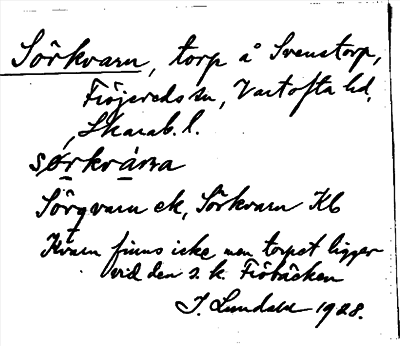 Sörkvarn, torp å Svenstorp,
Fröjereds sn, Vartofta hd,
Skarab. l.
sørkvána
Sörqvarn ek, Sörkvarn Kb
Kvarn finns icke men torpet ligger
vid den s. k. Fröbäcken
J. Lundahl 1928.